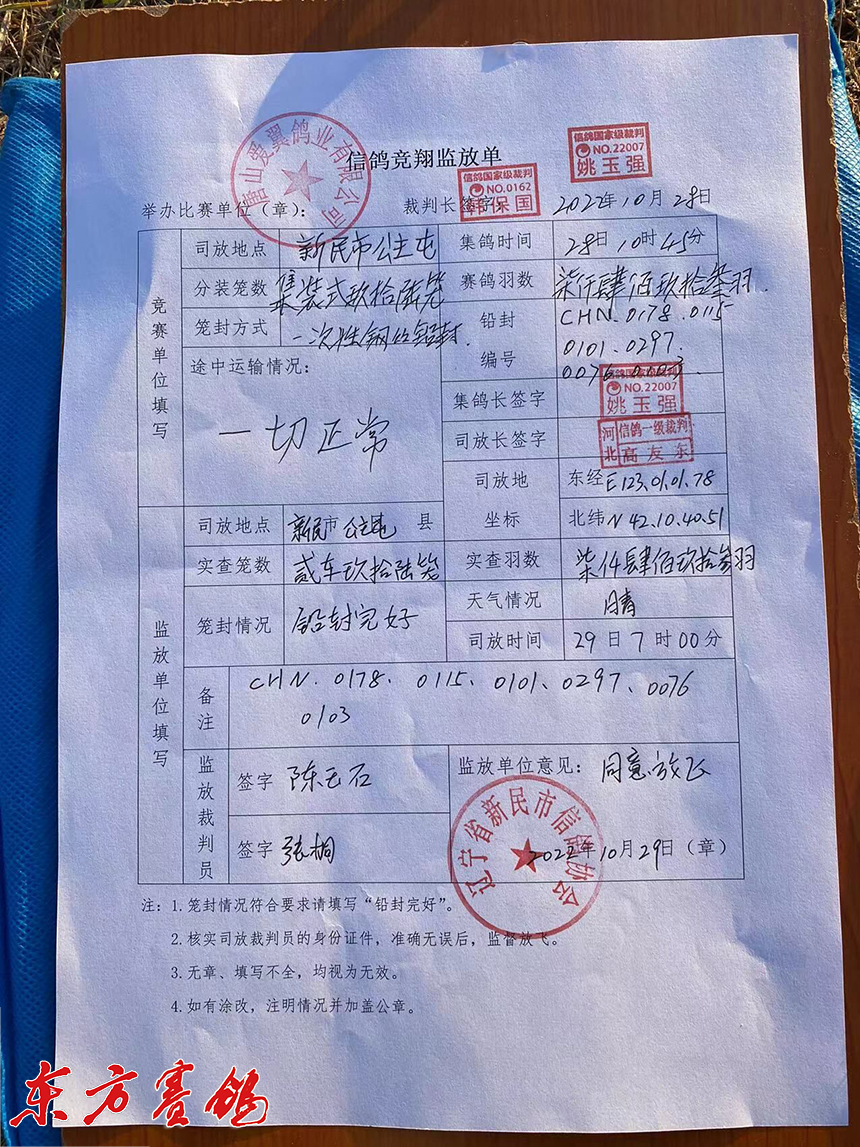 信鸽竞翔监放单
唐山爱翼鸽业有限公司
信鸽国家级裁判
NO.22007
姚玉强
信鸽国家级裁判
NO.0162
韩保国
举办比赛单位(章): 裁判长签字: 2022年10月28日
竞赛单位填写
司放地点 新民市公主屯 集鸽时间 28日10时45分
分装笼数 集装式玖拾陆笼 赛鸽羽数 柒仟肆佰玖拾叁羽.
笼封方式 一次性钢丝铅封. 铅封编号 CHN.0178.0115
0101.0297.
0076.0103.
途中运输情况:
一切正常
集鸽长签字
信鸽国家级裁判
NO.22007
姚玉强
司放长签字
河北
信鸽一级裁判
高友东
司放地坐标 东经E123.01.01.78
北纬N42.10.40.51
监放单位填写
司放地点 新民市公主屯县
实查笼数 贰车玖拾陆笼 实查羽数 柒仟肆佰玖拾叁羽
笼封情况 铅封完好 天气情况 晴
司放时间 29日7时00分
备注 CHN.0178.0115.0101.0297.0076
0103
监放裁判员
签字 陈玉石
签字 张桐
监放单位意见: 同意放飞
辽宁省新民市信鸽协会
2022年10月29日(章)
注: 1.笼封情况符合要求请填写“铅封完好”。
2.核实司放裁判员的身份证件，准确无误后，监督放飞。
3.无章、填写不全，均视为无效。
4.如有涂改，注明情况并加盖公章。
东方赛鸽